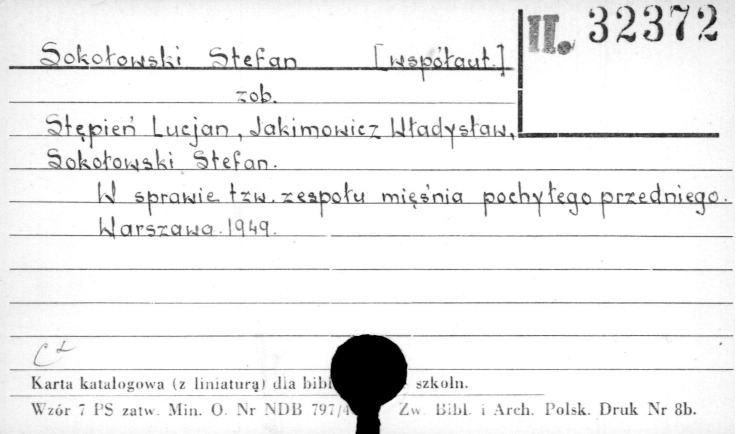 II. 32372
Sokołowski Stefan [współaut.]
zob.
Stępień Lucjan, Jakimowicz Władysław,
Sokołowski Stefan.
W sprawie tzw. zespołu mięśnia pochyłego przedniego.
Warszawa. 1949.
Karta katalogowa (z liniaturą) dla szkoln.
Wzór 7 PS zatw. Min. O. Nr NDB Zw. Bibl. i Arch. Polsk. Druk Nr 8b.